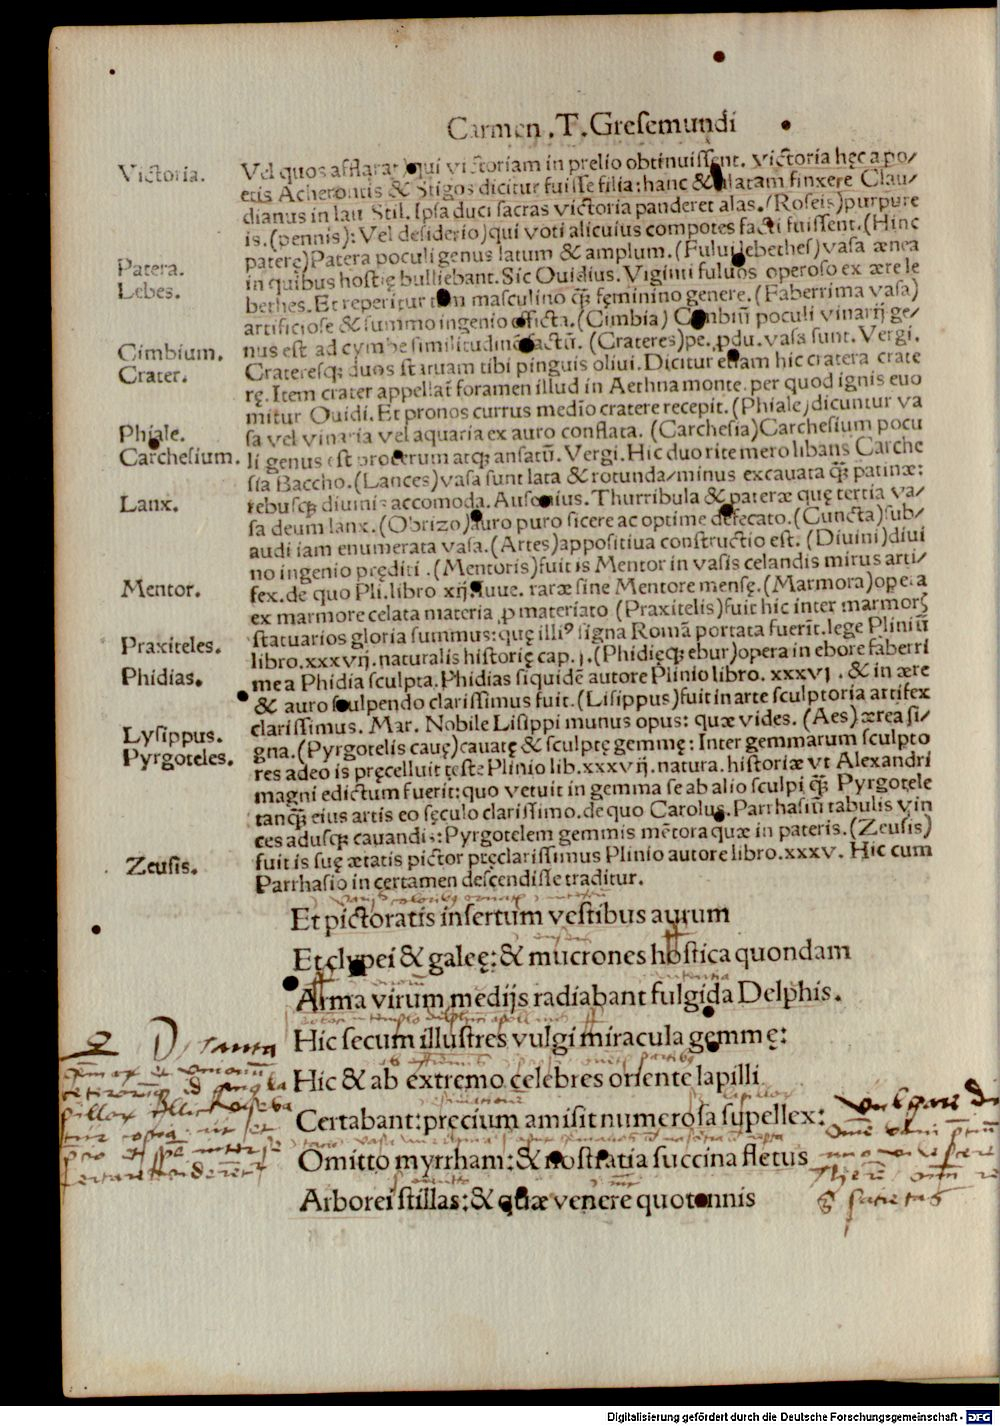 Carmen .T. Gresemundi
Victoria.
Vel quos afflarat) qui victoriam in prelio obtinuissent. Victoria hęc a po/
etis Acherontis & Stigos dicitur fuisse filia: hanc & alatam finxere Clau/
dianus in lau Stil. Ipsa duci sacras victoria panderet alas. (Roseis) purpure
is. (pennis): Vel desiderio) qui voti alicuius compotes facti fuissent. (Hinc
Patera.
paterę) Patera poculi genus latum & amplum. (Fului lebethes) vasa ænea
Lebes.
in quibus hostię bulliebant. Sic Ouidius. Viginti fuluos operoso ex ære le
bethes. Et reperitur tam masculino qȝ̃ fęminino genere. (Faberrima vasa)
artificiose & summo ingenio efficta. (Cimbia) Cimbiũ poculi vinarij ge/
Cimbium.
nus est ad cymbe similitudinẽ factũ. (Crateres) pe. ꝓdu. vasa sunt. Vergi.
Crater.
Crateresqȝ duos statuam tibi pinguis oliui. Dicitur etiam hic cratera crate
rę. Item crater appellat̃ foramen illud in Aethna monte. per quod ignis euo
mitur Ouidi. Et pronos currus medio cratere recepit. (Phiale) dicuntur va
Phiale.
sa vel vinaria vel aquaria ex auro conflata. (Carchesia) Carchesium pocu
Carchesium.
li genus est procerum atqȝ ansatũ. Vergi. Hic duo rite mero libans Carche
sia Baccho. (Lances) vasa sunt lata & rotunda/minus excauata qȝ̃ patinæ:
Lanx.
rebusqȝ diuinis accomoda. Ausonius. Thurribula & pateræ quę tertia va/
sa deum lanx. (Obrizo) auro puro sicere ac optime defecato. (Cuncta) sub/
audi iam enumerata vasa. (Artes) appositiua constructio est. (Diuini) diui
no ingenio pręditi. (Mentoris) fuit is Mentor in vasis celandis mirus arti/
Mentor.
fex. de quo Pli. libro xij. Iuue. raræ sine Mentore mensę. (Marmora) opera
ex marmore celata materia ꝓ materiato (Praxitelis) fuit hic inter marmorꝝ
Praxiteles.
statuarios gloria summus: quę illiꝰ signa Romã portata fuerĩt. lege Pliniũ
libro. xxxvij. naturalis historię cap. j. (Phidięqȝ ebur) opera in ebore faberri
Phidias.
me a Phidia sculpta. Phidias siquidẽ autore Plinio libro. xxxvj. & in ære
& auro sculpendo clarissimus fuit. (Lisippus) fuit in arte sculptoria artifex
Lysippus.
clarissimus. Mar. Nobile Lisippi munus opus: quæ vides. (Aes) ærea si/
Pyrgoteles.
gna. (Pyrgotelis cauę) cauatę & sculptę gemmę: Inter gemmarum sculpto
res adeo is pręcelluit teste Plinio lib. xxxvij. natura. historiæ vt Alexandri
magni edictum fuerit: quo vetuit in gemma se ab alio sculpi qȝ̃ Pyrgotele
tanqȝ̃ eius artis eo sęculo clarissimo. de quo Carolus. Parrhasiũ tabulis vin
ces adusqȝ cauandis: Pyrgotelem gemmis mẽtora quæ in pateris. (Zeusis)
Zeusis.
fuit is suę ætatis pictor pręclarissimus Plinio autore libro. xxxv. Hic cum
Parrhasio in certamen descendisse traditur.
Et pictoratis insertum vestibus aurum
Et clypei & galeę: & mucrones hostica quondam
Arma virum medijs radiabant fulgida Delphis.
Hic secum illustres vulgi miracula gemmę:
Hic & ab extremo celebres oriente lapilli
Certabant: precium amisit numerosa supellex:
Omitto myrrham: & nostratia succina fletus
Arborei stillas: & quæ venere quotannis
Digitalisierung gefördert durch die Deutsche Forschungsgemeinschaft - DFG